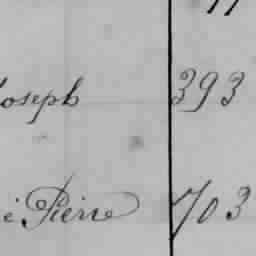 Joseph 393
é Pierre 703